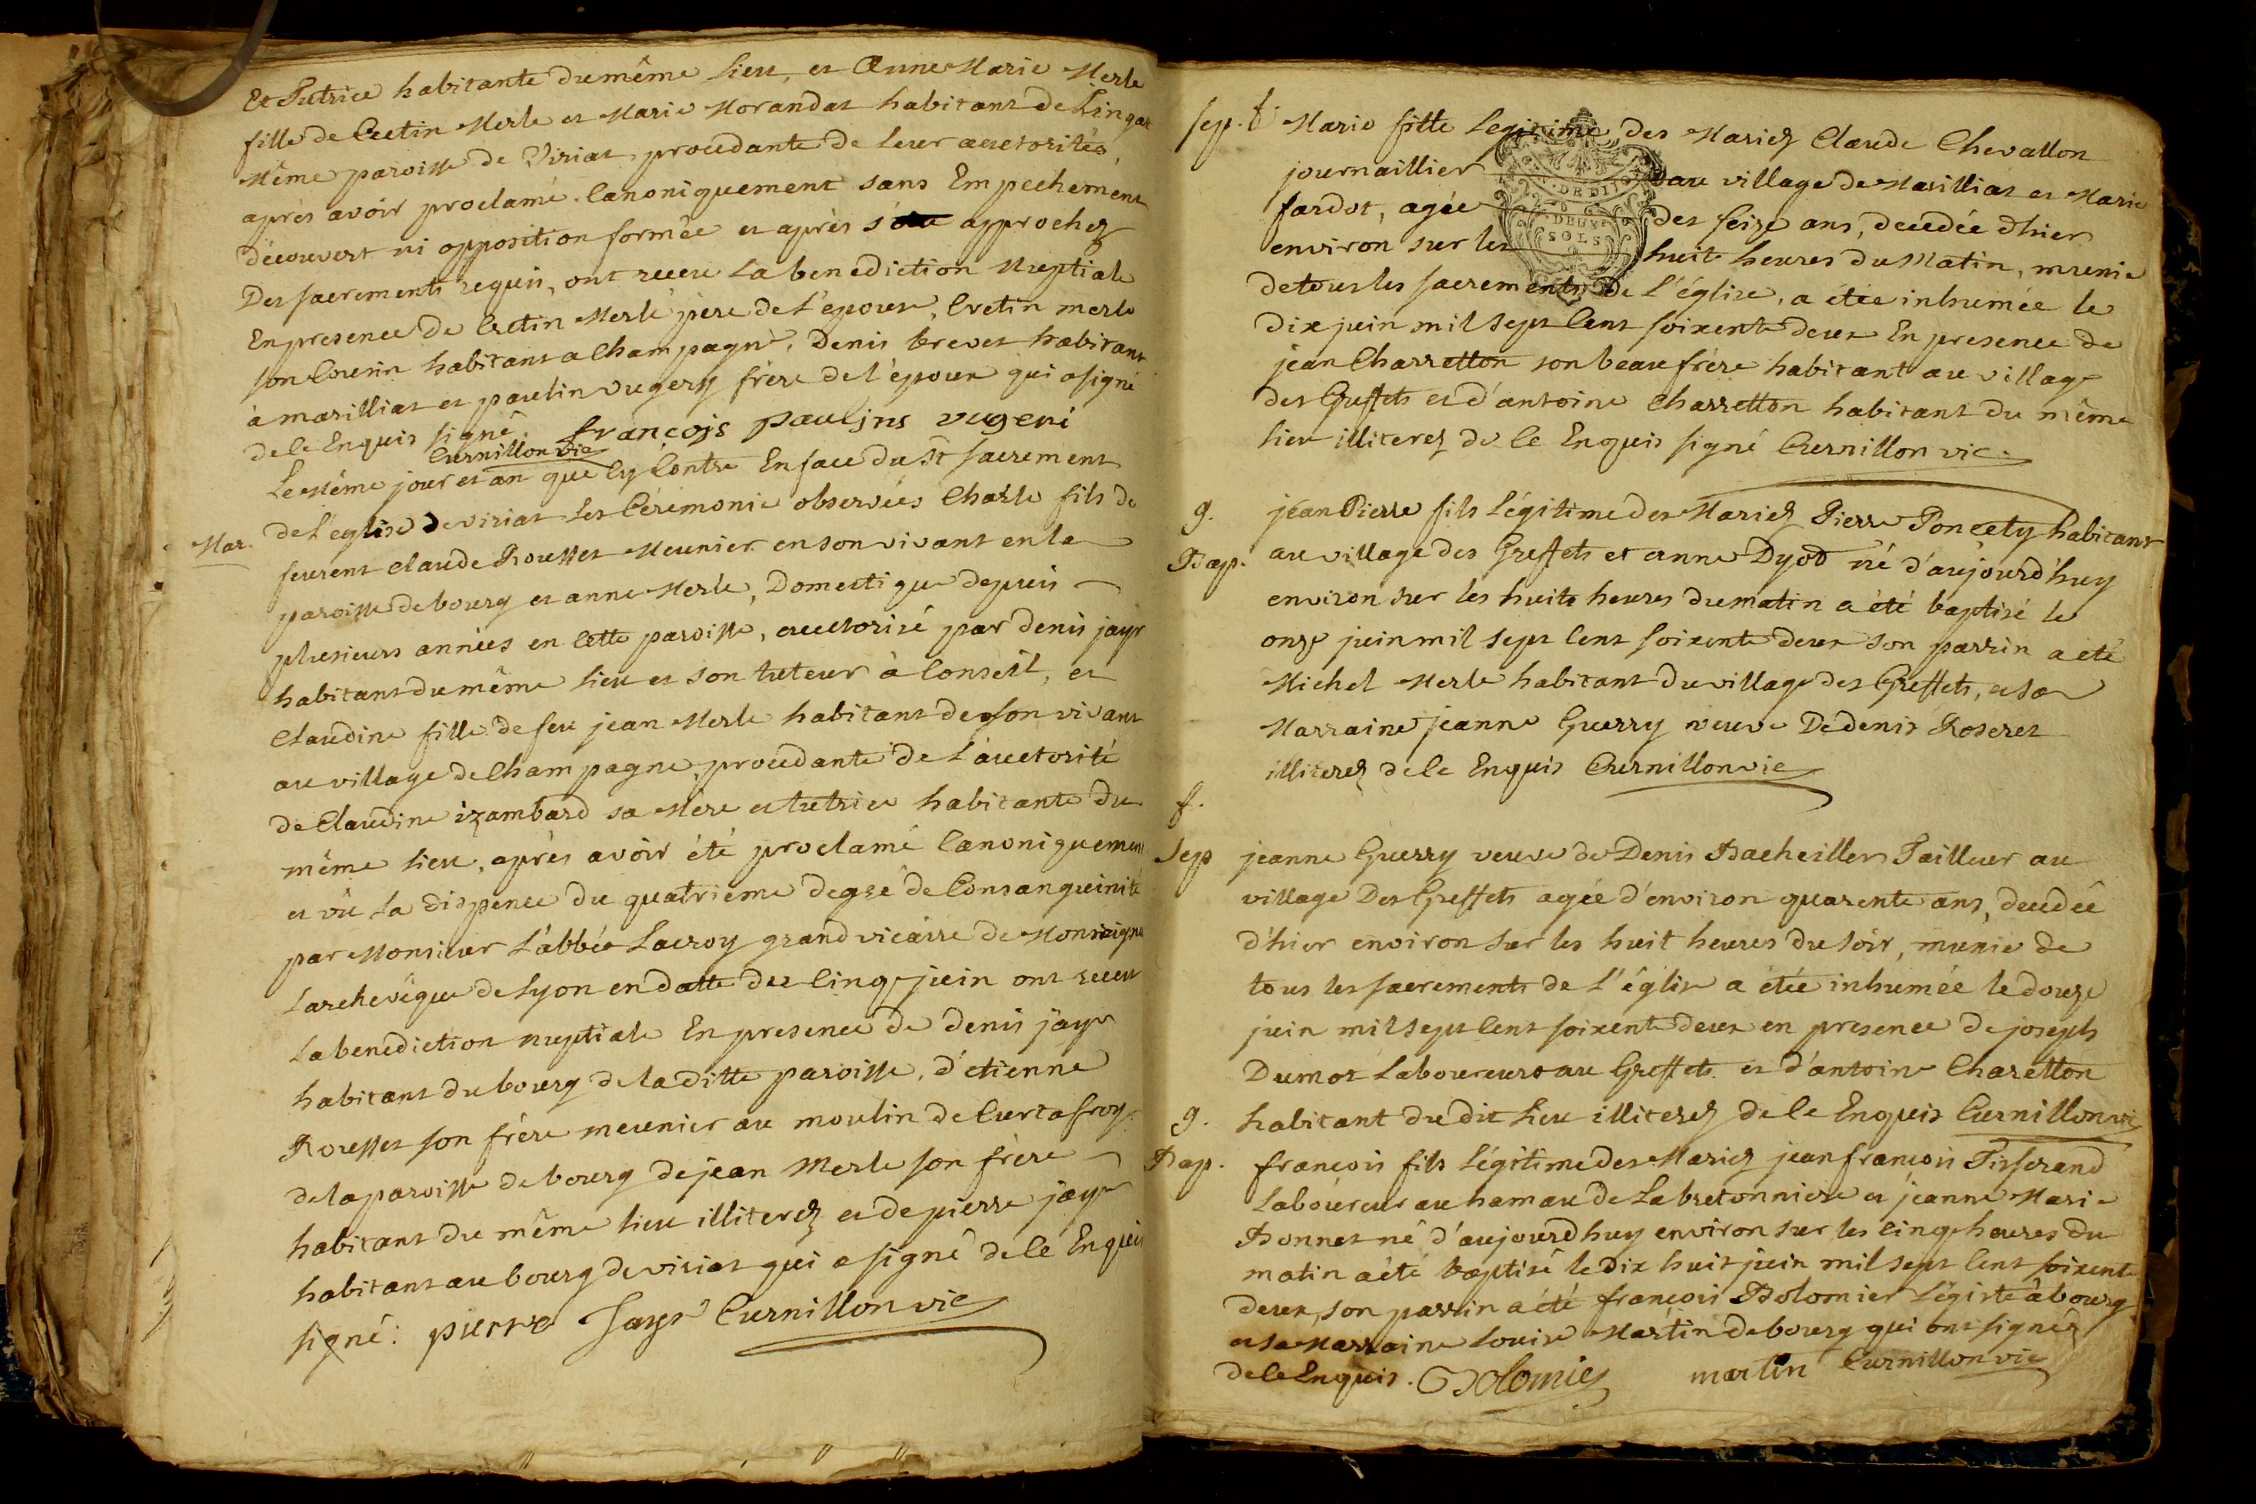 Et Tutrice habitante du même lieu, et Anne Marie Merle
fille de Cretin Merle et Marie Morandat habitant de Lingat
Même paroisse de Viriat, procedante de leur auctorités,
après avoir proclamé Canoniquement sans Empechement
découvert ni opposition formée et après s'être approchez
Des sacrements requis, ont receu La benediction Nuptiale
En presence de Cretin Merle père de l'epouse, Cretin merle
son Cousin habitant a Champagne, Denis brevet habitant
à marilliat et paulin vugery frère de l'époux qui a signé
de ce Enquis signé. françois paulins vugeri
Curnillon vic
Le Même jour et an que Cy Contre En face du St sacrement
Mar. de l'eglise de viriat les Cérémonie observées Charle fils de
feurent claude Rousset Meunier en son vivant en la
paroisse de bourg et anne Merle, Domestique depuis
plusieurs années en Cette paroisse, auctorisé par denis jayr
habitant du même lieu et son tuteur à Conseil, et
Claudine fille de feu jean Merle habitant de son vivant
au village de Champagne, procedante de L'auctorité
de Claudine izambard sa Mère et tutrice habitante du
même lieu, après avoir été proclamé Canoniquement
et vû La dispence du quatrieme degré de Consanguinité
par Monsieur L'abbée Lacroy grand vicaire de Monseigne
Larchevêque de Lyon en datte des Cinq juin ont receu
La benediction nuptiale En presence de denis jayr
habitant du bourg de la ditte paroisse, d'etienne
Rousset son frère meunier au moulin de Curtafroy
de la paroisse de bourg de jean Merle son frère
habitant du même lieu illiterez et de pierre jayr
habitant au bourg de viriat qui a signé de Ce Enquis
signé: pierre Jayr Curnillon vic
sep. f. Marie fille Legitime des Mariez Claude Chevallon
journaillier au village de Marilliat et Marie
fardot, agée des seize ans, decedée d'hier
environ sur les huit heures du Matin, munie
DE DIJON
DEUX
SOLS
de tous les sacrements De l'église, a étée inhumée le
dix juin mil sept Cent soixente deux En presence de
jean Charretton son beau frère habitant au village
des Greffets et d'antoine Charretton habitant du même
lieu illiterez de Ce Enquis signé Curnillon vic.
g. jean Pierre fils Légitime des Mariez Pierre Poncety habitant
Bap. au village des Greffets et anne Dyot né d'aujourd'huy
environ sur les huit heures du matin a été baptisé le
onze juin mil sept Cent soixente deux son parrin a été
Michel Merle habitant du village des Greffets, et sa
Marraine jeanne Guerry veuve De denis Roseret
illiterez de Ce Enquis Curnillon vic
f.
Sep jeanne Guerry veuve de Denis Bacheiller Tailleur au
village Des Greffets agée d'environ quarente ans, decedée
d'hier environ sur les huit heures du soir, munie de
tous les sacrements de l'église a étée inhumée le douze
juin mil sept Cent soixente deux en presence de joseph
Dumot Laboureur au Greffets et d'antoine Charetton
g. habitant du dit lieu illiterez de Ce Enquis Curnillon vic
Bap. françois fils Légitime des Mariez jean françois Tisserand
Laboureur au hamau de La bretonniere et jeanne Marie
Bonnet né d'aujourd'huy environ sur les Cinq heures du
matin a été baptisé le dix huit juin mil sept Cent soixente
deux, son parrin a été françois Bolomier Légiste à bourg
et sa Marraine Louise Martin de bourg qui ont signéz
de Ce Enquis. Bolomier martin Curnillon vic